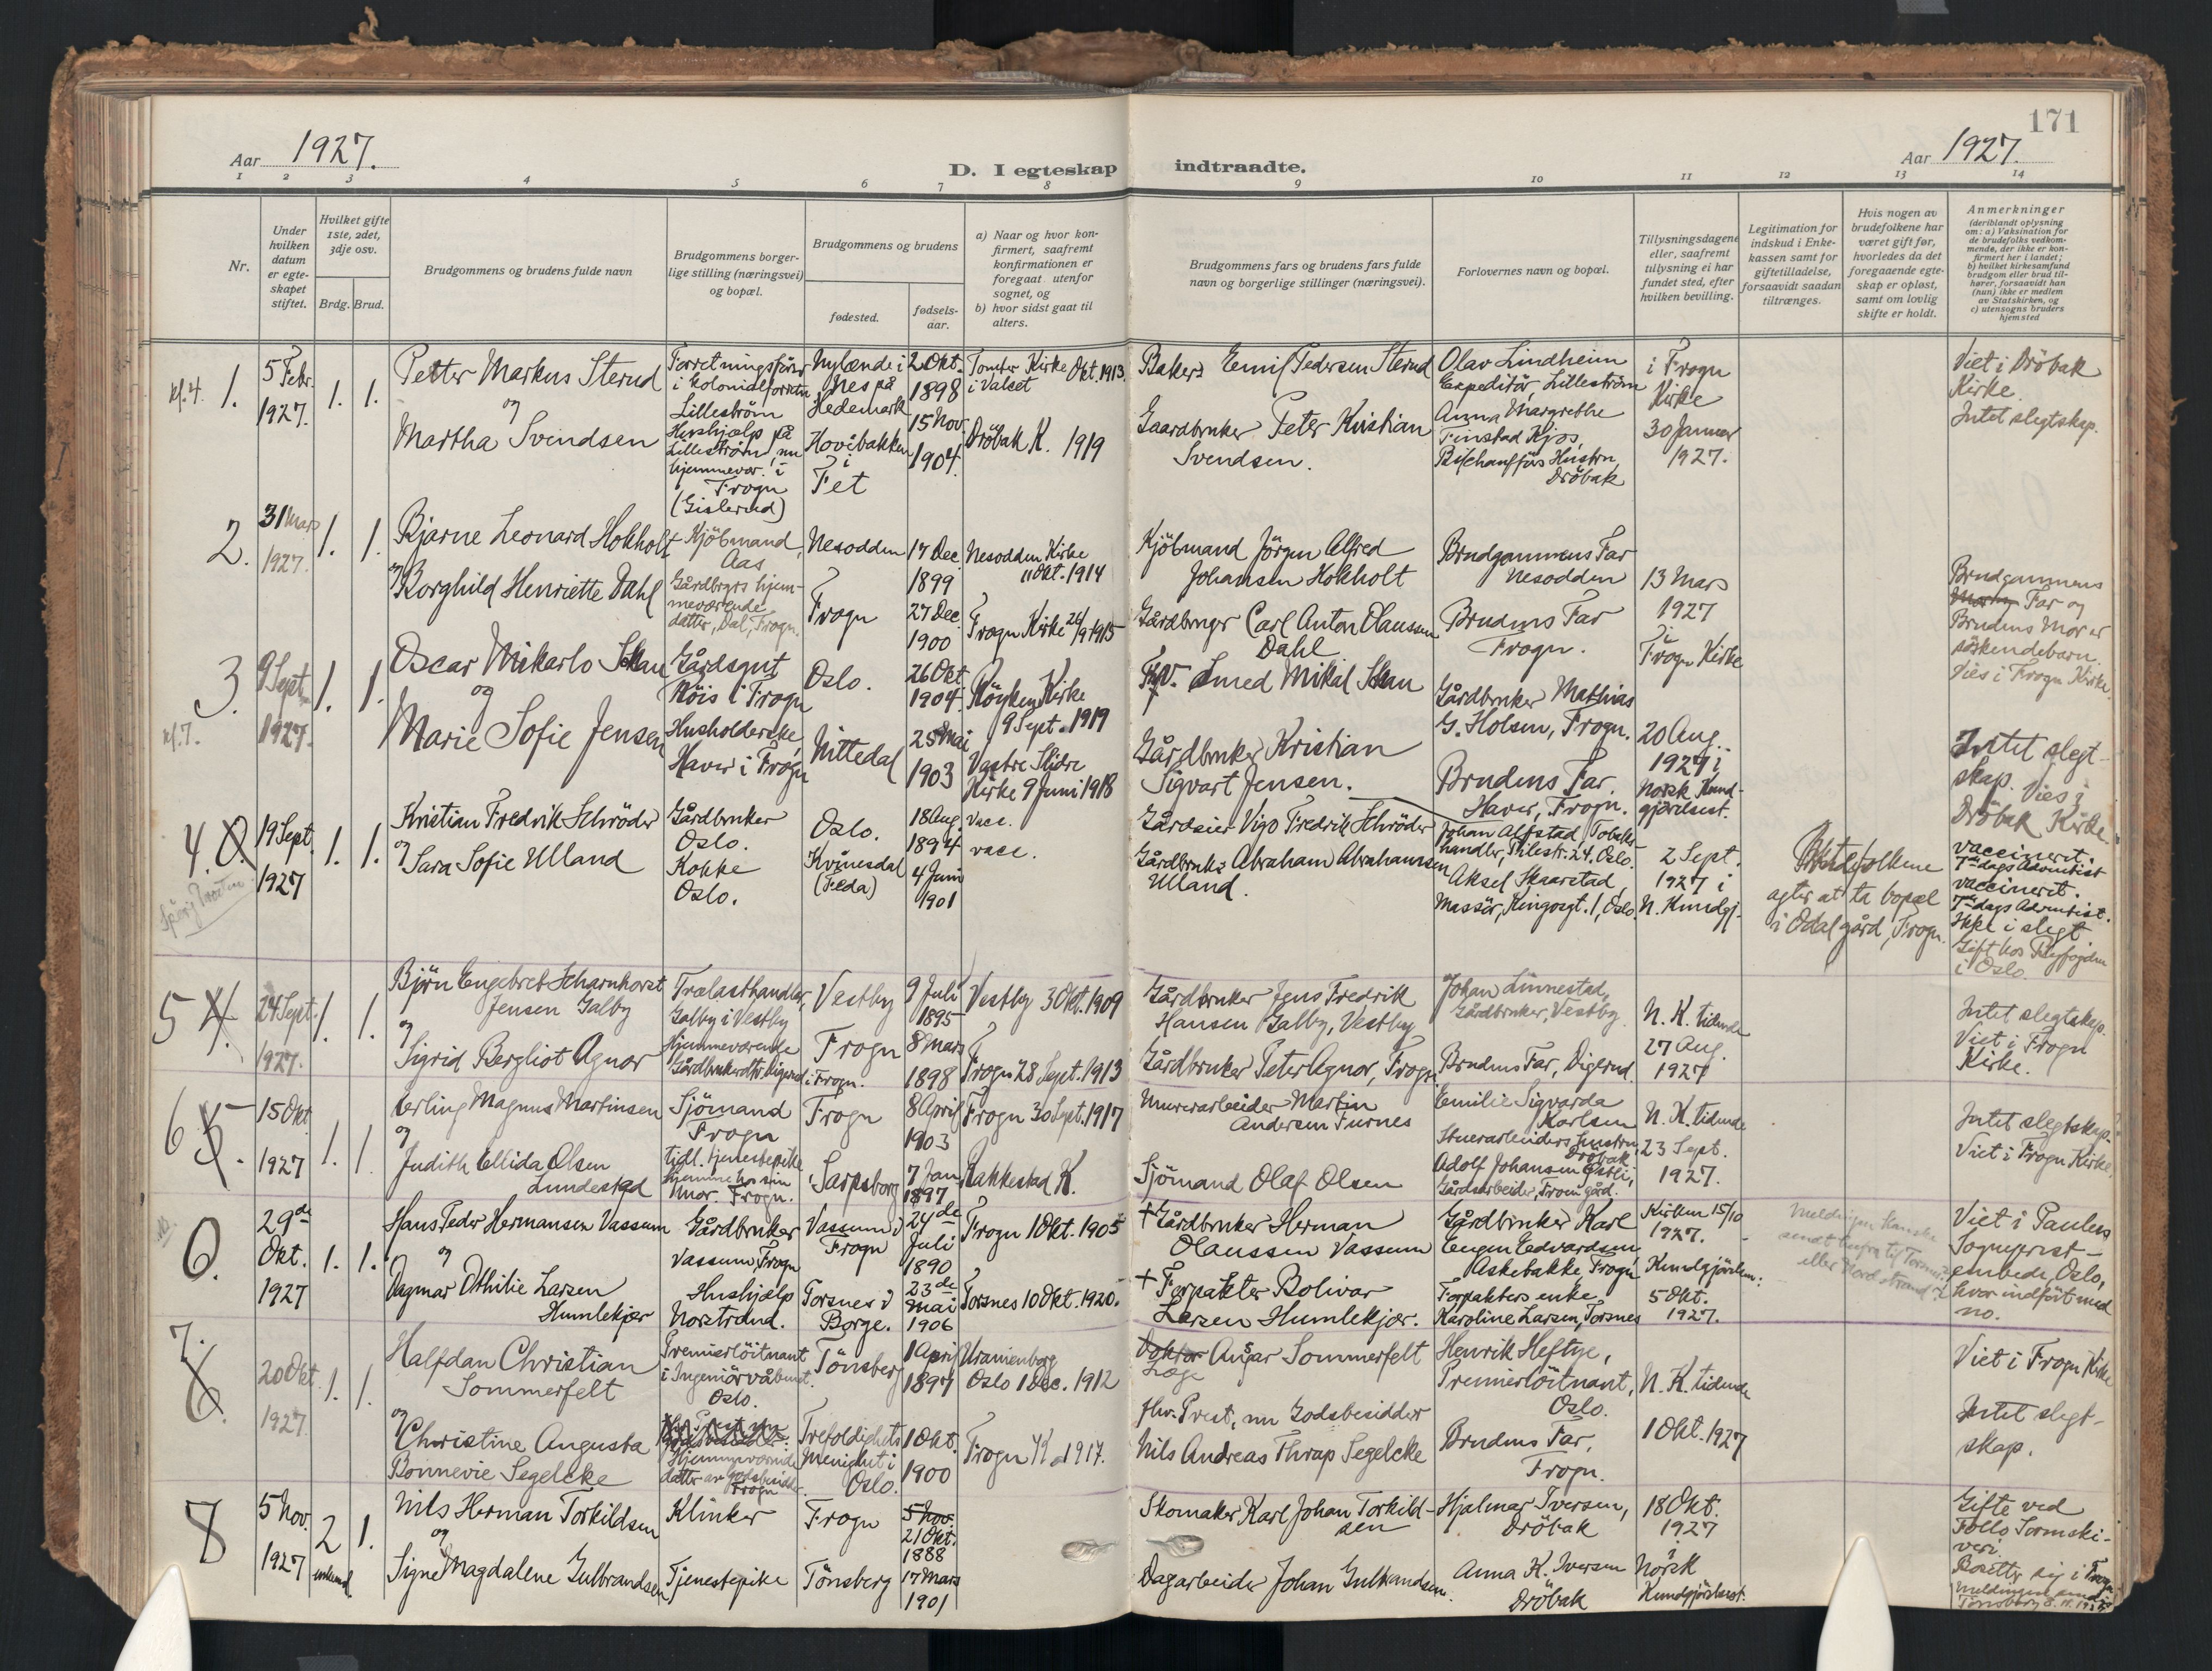 171
Aar 1927.
D. I egteskap indtraadte.
Aar 1927.
1 2 3 4 5 6 7 8 9 10 11 12 13 14
Nr.
Under
hvilken
datum
er egte-
skapet
stiftet.
Hvilket gifte
1ste, 2det,
3dje osv.
Brdg. Brud.
Brudgommens og brudens fulde navn
Brudgommens borger-
lige stilling (næringsvei)
og bopæl.
Brudgommens og brudens
fødested.
fødsels-
aar.
a) Naar og hvor kon-
firmert, saafremt
konfirmationen er
foregaat utenfor
sognet, og
b) hvor sidst gaat til
alters.
Brudgommens fars og brudens fars fulde
navn og borgerlige stillinger (næringsvei).
Forlovernes navn og bopæl.
Tillysningsdagene
eller, saafremt
tillysning ei har
fundet sted, efter
hvilken bevilling.
Legitimation for
indskud i Enke-
kassen samt for
giftetilladelse,
forsaavidt saadan
tiltrænges.
Hvis nogen av
brudefolkene har
været gift før,
hvorledes da det
foregaaende egte-
skap er opløst,
samt om lovlig
skifte er holdt.
Anmerkninger
(deriblandt oplysning
om: a) Vaksination for
de brudefolks vedkom-
mende, der ikke er kon-
firmert her i landet;
b) hvilket kirkesamfund
brudgom eller brud til-
hører, forsaavidt han
(hun) ikke er medlem
av Statskirken, og
c) utensogns bruders
hjemsted
kl. 4. 1.
5 Febr.
1927.
1. 1.
Petter Markus Sterud
og
Martha Svendsen
Forretningsfører
i kolonialforretn.
Lilleström
Hushjælp på
Lilleström, nu
hjemmevær. i
Frogn
(Gislerud)
Nylænde i
Nes på
Hedemark
Hovibakken
i
Fet
2 Okt.
1898
15 Nov.
1904.
Tomter Kirke Okt. 1913.
i Valset
Dröbak K. 1919
Baker Emil Pedersen Sterud
Gaardbruker Peter Kristian
Svendsen.
Olav Lindheim
Expeditör, Lilleström
Anna Margrethe
Finstad Kjos,
Bilchaufförs Hustru,
Dröbak
i Frogn
Kirke
30 Januar
1927.
Viet i Dröbak
Kirke.
Intet slegtskap.
2.
31 Mars
1927.
1. 1.
Bjarne Leonard Hokholt
og Borghild Henriette Dahl
Kjöbmand,
Aas
Gårdbrgrs hjem-
meværende
datter, Dal, Frogn.
Nesodden
Frogn
17 Dec.
1899
27 Dec.
1900
Nesodden Kirke
11 Okt. 1914
Frogn Kirke 26/9 1915
Kjöbmand Jörgen Alfred
Johansen Hokholt
Gårdbrugr Carl Anton Olaussen
Dahl
Brudgommens Far
Nesodden
Brudens Far
Frogn.
13 Mars
1927
i
Frogn Kirke
Brudgommens
Far og
Brudens Mor er
söskendebarn.
Vies i Frogn Kirke.
3.
kl. 7.
9 Sept.
1927.
1. 1.
Oscar Mikarlo Skau
og
Marie Sofie Jensen
Gårdsgut
Röis i Frogn
Husholderske,
Haver i Frogn
Oslo.
Nittedal
26 Okt
1904.
25 Mai
1903
Röyken Kirke
9 Sept. 1919
Vestre Slidre
Kirke 9 Juni 1918
Fhv. Smed Mikal Skau
Gårdbruker Kristian
Sigvart Jensen.
Gårdbruker Mathias
G. Holsen, Frogn.
Brudens Far.
Haver, Frogn.
20 Aug.
1927 i
Norsk Kund-
gjörelsest.
Intet slegt-
skap. Vies i
Dröbak Kirke.
4.
19 Sept.
1927
1. 1.
Kristian Fredrik Schröder
og
Sara Sofie Ulland
Gårdbruker
Oslo.
Kokke
Oslo.
Oslo.
Kvinesdal
(Feda)
18 Aug.
1894
4 Juni
1901
vacc.
vacc.
Gårdeier Vigo Fredrik Schröder
Gårdbruker Abraham Abrahamsen
Ulland.
Johan Alfstad, Tobaks-
handler, Thilestr. 24. Oslo.
Aksel Skaarstad,
Massör, Kingosgt. 1, Oslo.
2 Sept.
1927 i
N. Kundgj.
Brudefolkene
agter at ta bopæl
i Odal gård, Frogn.
vaccineret.
7de dags Adventist
vaccineret.
7de dags Adventist.
Ikke i slegt
Gift hos Byfogden
i Oslo.
5 4.
24 Sept.
1927.
1. 1.
Björn Engebret Scharnhorst
Jensen Galby
og
Sigrid Bergliot Agnor
Trælasthandler,
Galby i Vestby
Hjemmeværende
Gårdbrukerdtr. Digerud i Frogn.
Vestby
Frogn
9 Juli
1895
8 Mars
1898
Vestby 3 Okt. 1909
Frogn 28 Sept. 1913
Gårdbruker Jens Fredrik
Hansen Galby, Vestby
Gårdbruker Peter Agnor, Frogn.
Johan Linnestad,
Gårdbruker, Vestby.
Brudens Far, Digerud.
N. K. tidende
27 Aug.
1927
Intet slegtskap.
Viet i Frogn
Kirke.
6 5.
15 Okt
1927
1. 1.
Erling Magnus Martinsen
og
Judith Ellida Olsen
Lundestad
Sjömand
Frogn
tidl. tjenestepike
hjemme hos sin
mor. Frogn.
Frogn
Sarpsborg
8 April
1903
7 Jan
1897
Frogn 30 Sept. 1917
Rakkestad K.
Murerarbeider Martin
Andersen Furnes
Sjömand Olaf Olsen
Emilie Sigvarda
Karlsen
Stuerarbeiders hustru
Dröbak
Adolf Johansen Östli,
Gårdsarbeider, Froen gård.
N. K. tidende
23 Sept.
1927.
Intet slegtskap.
Viet i Frogn Kirke.
6.
29de
Okt.
1927
1. 1.
Hans Peder Hermansen Vassum
og
Dagmar Othilie Larsen
Humlekjær
Gårdbruker
Vassum, Frogn
Hushjælp
Norstrand.
Vassum i
Frogn
Torsnes i
Borge.
24de
Juli
1890
23de
Mai
1906
Frogn 1 Okt. 1905
Torsnes 10 Okt. 1920.
+ Gårdbruker Herman
Olaussen Vassum
+ Forpakter Bolivar
Larsen Humlekjær.
Gårdbruker Karl
Eugen Edvardsen,
Askebakke Frogn
Forpakters enke
Karoline Larsen, Torsnes
Kirken 15/10
1927.
Kundgjörelsen:
5 Okt.
1927.
eller Nordstrand?
Viet i Paulus
Sogneprest-
embede, Oslo,
hvor indfört med
no.
7.
20 Okt
1927.
1. 1.
Halfdan Christian
Sommerfelt
og
Christine Augusta
Bonnevie Segelcke
Premierlöitnant
i Ingeniörvåbnet.
Oslo.
Hjemmeværende
datter av Godsbesidder.
Frogn
Tönsberg
Trefoldighets
Menighet i
Oslo.
1 April
1897
1 Okt.
1900
Uranienborg
Oslo 1 Dec. 1912
Frogn K 1917.
Doktor Ansgar Sommerfelt
Læge
fhv. Prest, nu Godsbesidder
Nils Andreas Thrap Segelcke
Henrik Heftye,
Premierlöitnant,
Oslo.
Brudens Far,
Frogn.
N. K. tidende
1 Okt. 1927
Viet i Frogn Kirke
Intet slegt-
skap.
8
5 Nov.
1927
2 1.
enkemd.
Nils Herman Torkildsen
og
Signe Magdalene Gulbrandsen
Klinker
Tjenestepike
Frogn
Tönsberg
5 Nov.
21 Okt.
1888
17 Mars
1901
Skomaker Karl Johan Torkild-
sen
Dagarbeider Johan Gulbrandsen.
Hjalmar Iversen,
Dröbak
Anna K. Iversen
Dröbak
18 Okt.
1927
i
Norsk
Kundgjörelsest.
Gifte ved
Follo Sorenskri-
veri.
Bosetter sig i Frogn